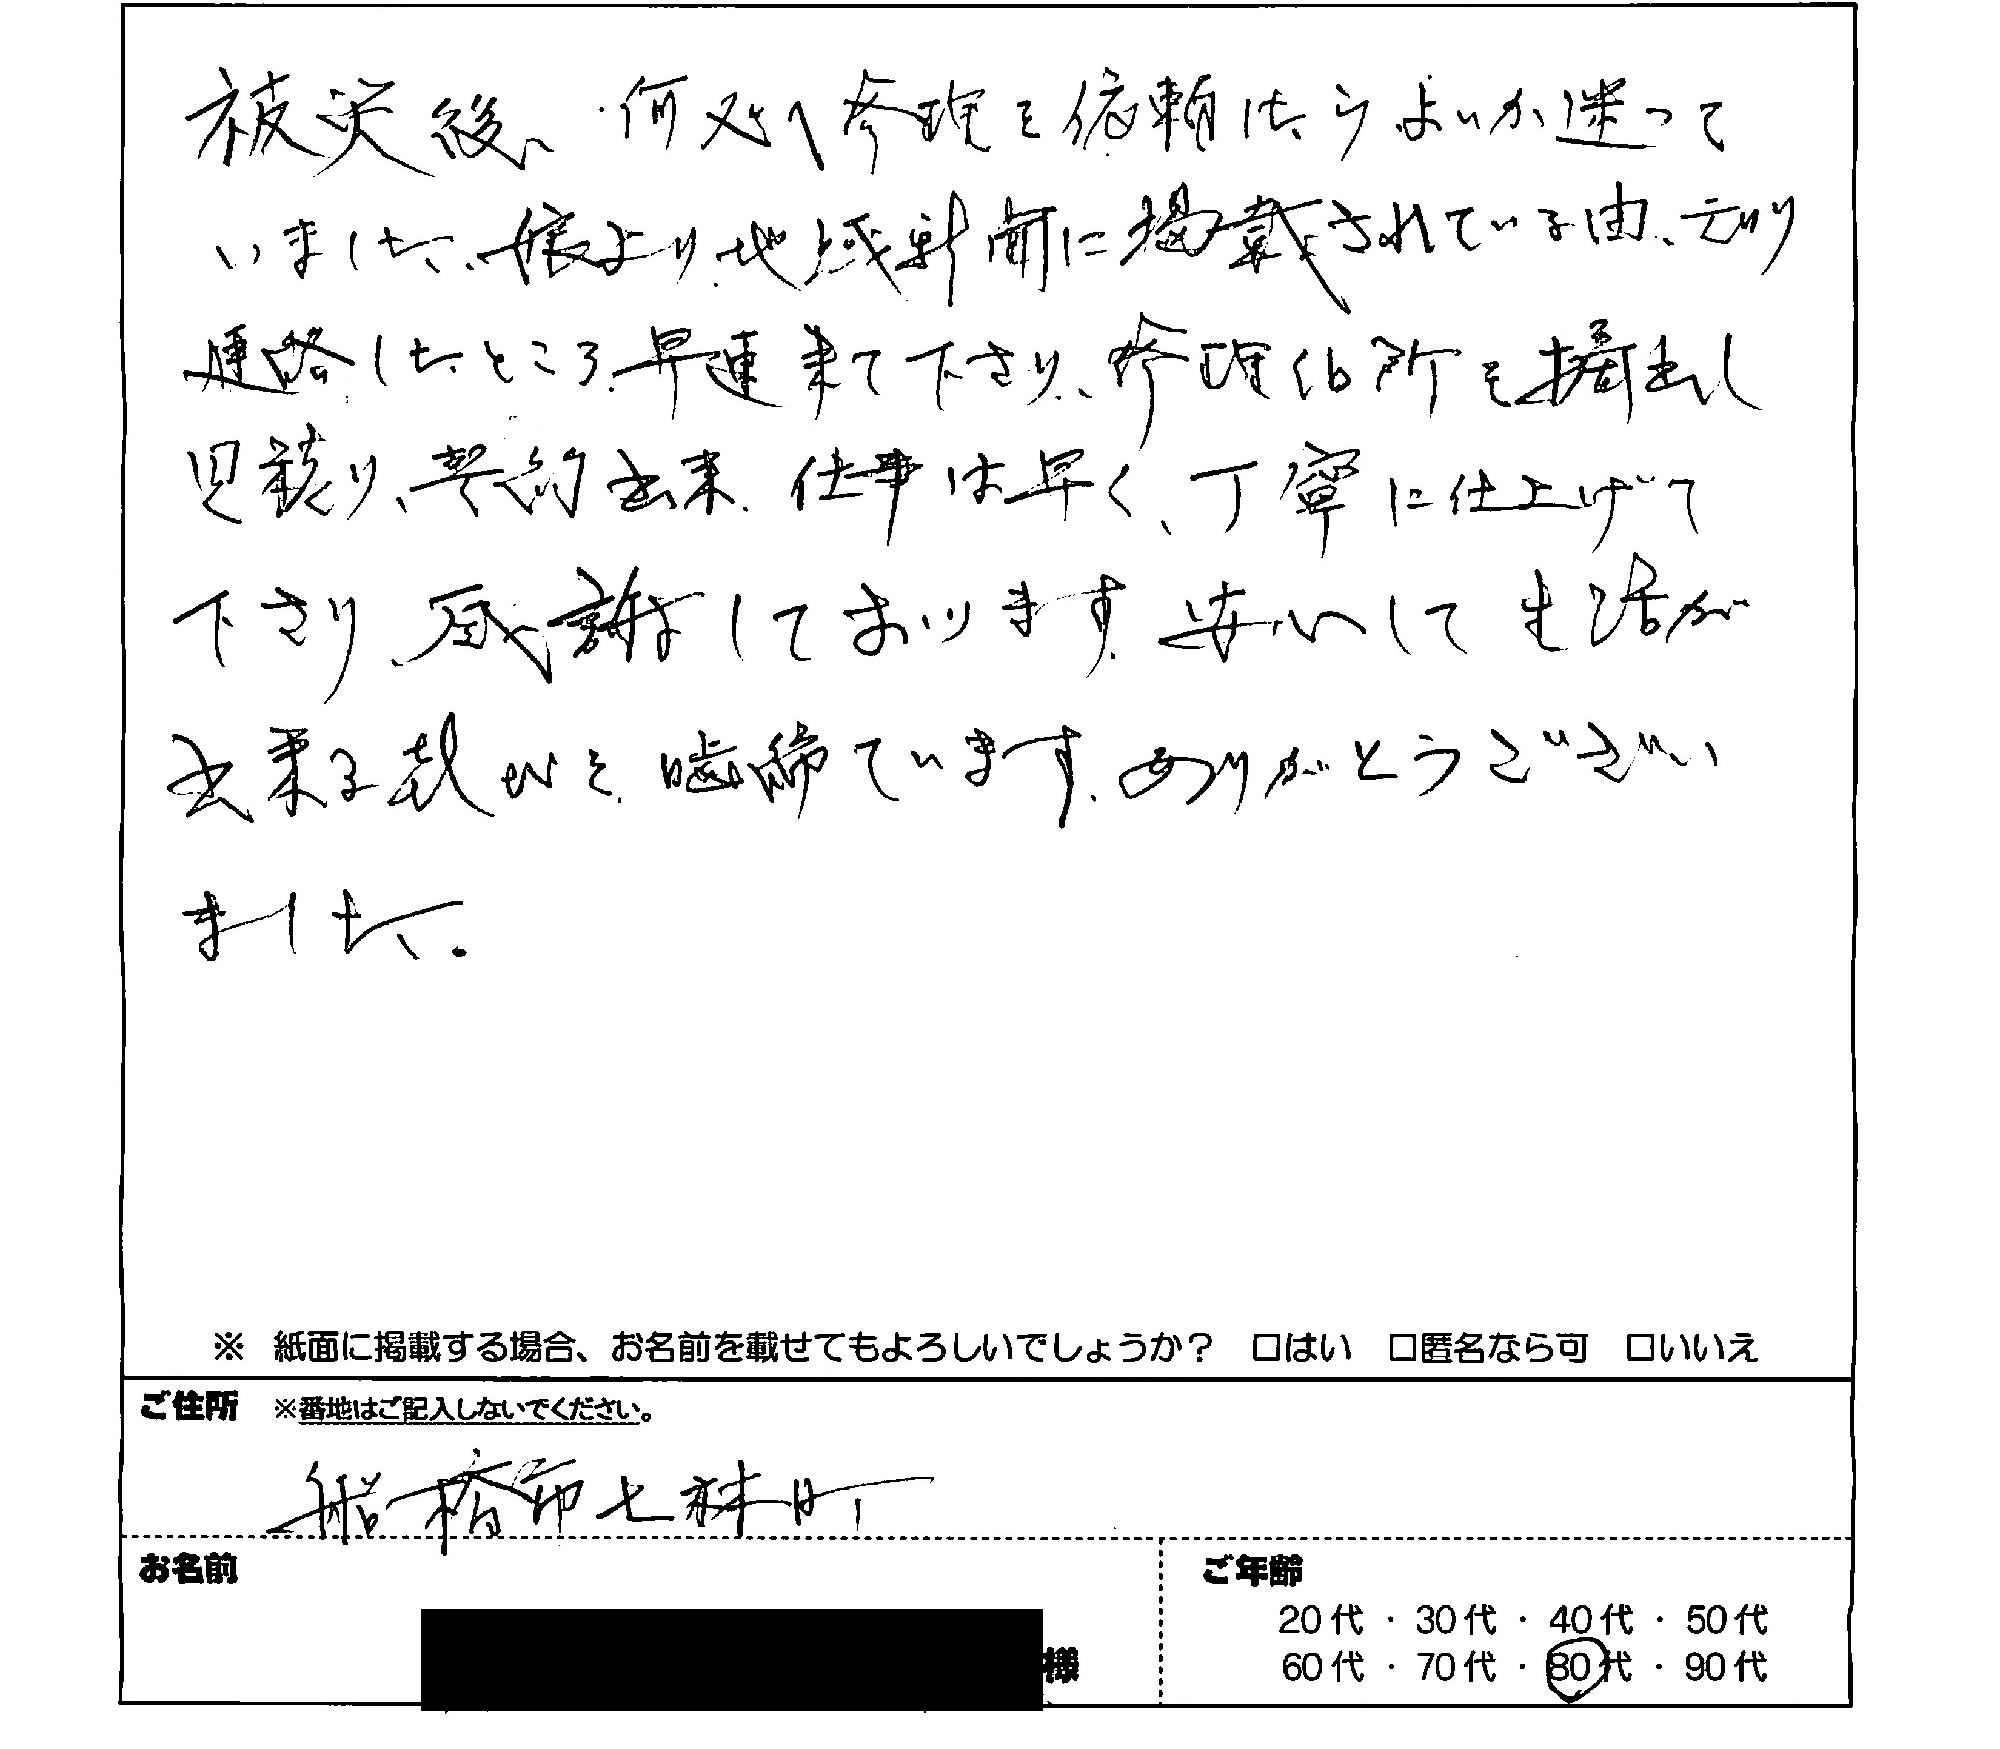 被災後、何処へ修理を依頼したらよいか迷って
いました、娘より、地域新聞に掲載されている由、云り
連絡したところ、早速来て下さり、修理個所を摘出し
見積り、契約出来、仕事は早く、丁寧に仕上げて
下さり、感謝しております。安心して生活が
出来る喜びを噛締ています。ありがとうござい
ました。
※ 紙面に掲載する場合、お名前を載せてもよろしいでしょうか? □はい □匿名なら可 □いいえ
ご住所 ※番地はご記入しないでください。
船橋市七林町
お名前
様
ご年齢
20代・30代・40代・50代
60代・70代・80代・90代